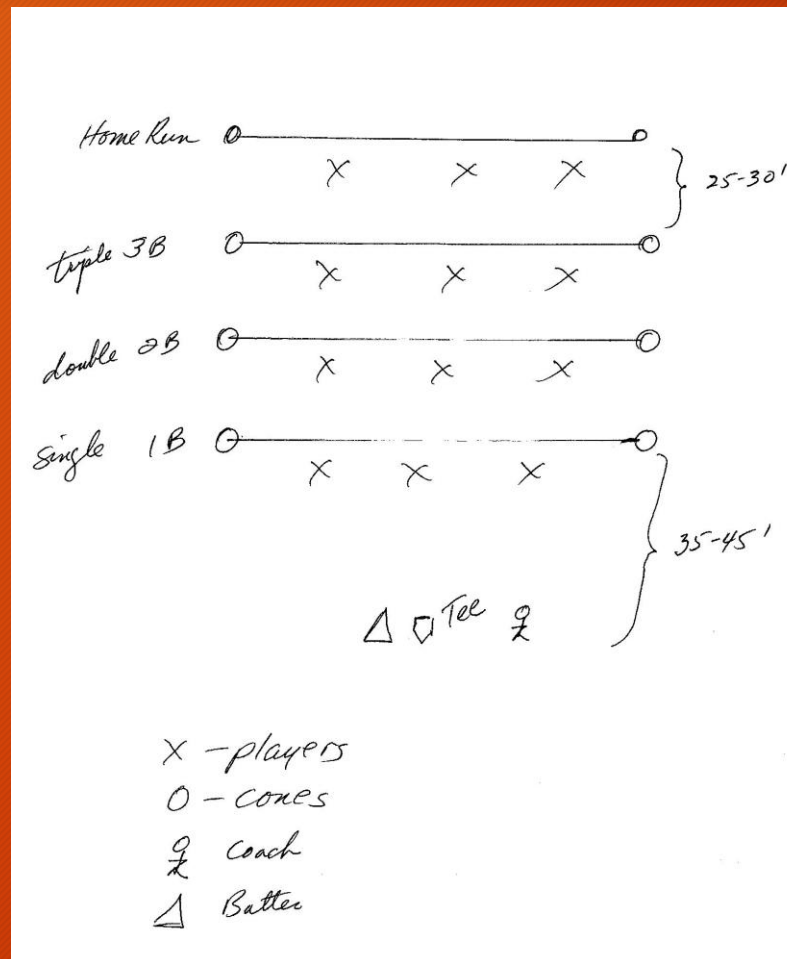 Home Run
X X X
25-30'
triple 3B
X X X
double 2B
X X X
Single 1B
X X X
35-45'
Tee
X - players
O - cones
Coach
Batter